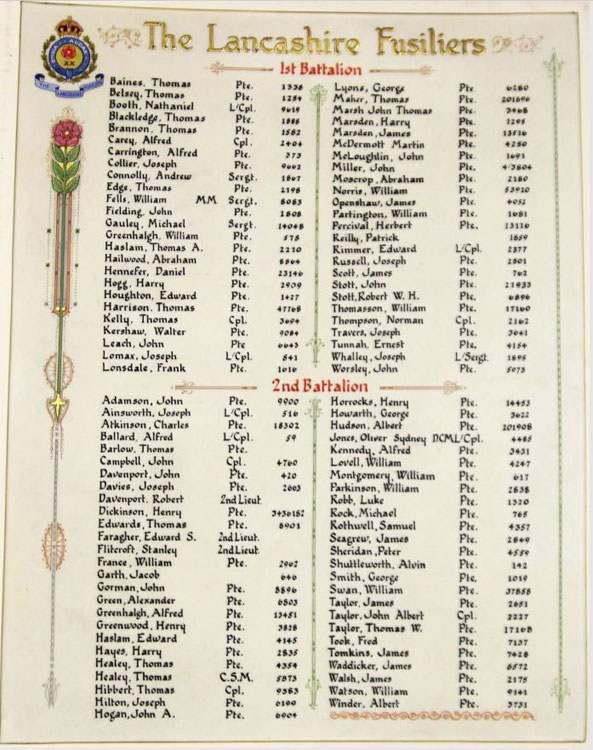 The Lancashire Fusiliers
1st Battalion
Baines, Thomas Pte. 1338
Belsey, Thomas Pte. 1254
Booth, Nathaniel L/Cpl. 9619
Blackledge, Thomas Pte. 1888
Brannon, Thomas Pte. 1582
Carey, Alfred Cpl. 2404
Carrington, Alfred Pte. 373
Collier, Joseph Pte. 9662
Connolly, Andrew Sergt. 1867
Edge, Thomas Pte. 2198
Fells, William MM Sergt. 8083
Fielding, John Pte. 1808
Gauley, Michael Sergt. 14048
Greenhalgh, William Pte. 575
Haslam, Thomas A. Pte. 2220
Hailwood, Abraham Pte. 8864
Hennefer, Daniel Pte. 23146
Hogg, Harry Pte. 2939
Houghton, Edward Pte. 1427
Harrison, Thomas Pte. 47768
Kelly, Thomas Cpl. 3694
Kershaw, Walter Pte. 9084
Leach, John Pte 6643
Lomax, Joseph L/Cpl. 841
Lonsdale, Frank Pte. 1616
Lyons, George Pte 6280
Maher, Thomas Pte. 201696
Marsh John Thomas Pte. 3468
Marsden, Harry Pte. 1295
Marsden, James Pte. 13516
McDermott Martin Pte. 4280
McLoughlin, John Pte. 1691
Miller, John Pte. 4/3804
Moscrop, Abraham Pte. 2180
Norris, William Pte. 53920
Openshaw, James Pte. 4052
Partington, William Pte. 1681
Percival, Herbert Pte. 13116
Reilly, Patrick Pte. 1859
Rimmer, Edward L/Cpl. 2377
Russell, Joseph Pte. 2801
Scott, James Pte. 762
Stott, John Pte. 21933
Stott, Robert W. H. Pte. 6896
Thomasson, William Pte. 17160
Thompson, Norman Cpl. 2162
Travers, Joseph Pte. 3641
Tunnah, Ernest Pte. 4154
Whalley, Joseph L/Sergt. 1895
Worsley, John Pte. 5073
2nd Battalion
Adamson, John Pte. 9900
Ainsworth, Joseph L/Cpl. 516
Atkinson, Charles Pte. 18302
Ballard, Alfred L/Cpl. 59
Barlow, Thomas Pte.
Campbell, John Cpl. 4760
Davenport, John Pte. 420
Davies, Joseph Pte. 2603
Davenport, Robert 2nd Lieut
Dickinson, Henry Pte. 3436182
Edwards, Thomas Pte. 6901
Faragher, Edward S. 2nd Lieut.
Flitcroft, Stanley 2nd Lieut
France, William Pte. 2962
Garth, Jacob 646
Gorman, John Pte. 8896
Green, Alexander Pte. 6803
Greenhalgh, Alfred Pte. 13451
Greenwood, Henry Pte. 3828
Haslam, Edward Pte. 4145
Hayes, Harry Pte. 2835
Healey, Thomas Pte. 4354
Healey, Thomas C.S.M. 5873
Hibbert, Thomas Cpl. 9383
Hilton, Joseph Pte. 6199
Hogan, John A. Pte. 6904
Horrocks, Henry Pte. 14453
Howarth, George Pte. 3622
Hudson, Albert Pte. 201908
Jones, Oliver Sydney DCM L/Cpl. 4485
Kennedy, Alfred Pte. 3431
Lovell, William Pte. 4247
Montgomery, William Pte. 617
Parkinson, William Pte. 2838
Robb, Luke Pte. 1320
Rock, Michael Pte. 765
Rothwell, Samuel Pte. 4357
Seagrew, James Pte. 2849
Sheridan, Peter Pte. 4559
Shuttleworth, Alvin Pte. 142
Smith, George Pte. 1019
Swan, William Pte. 37858
Taylor, James Pte. 2651
Taylor, John Albert Cpl. 2227
Taylor, Thomas W. Pte. 17168
Took, Fred Pte. 7137
Tomkins, James Pte. 7428
Waddicker, James Pte. 6572
Walsh, James Pte. 2175
Watson, William Pte. 9341
Winder, Albert Pte. 3731